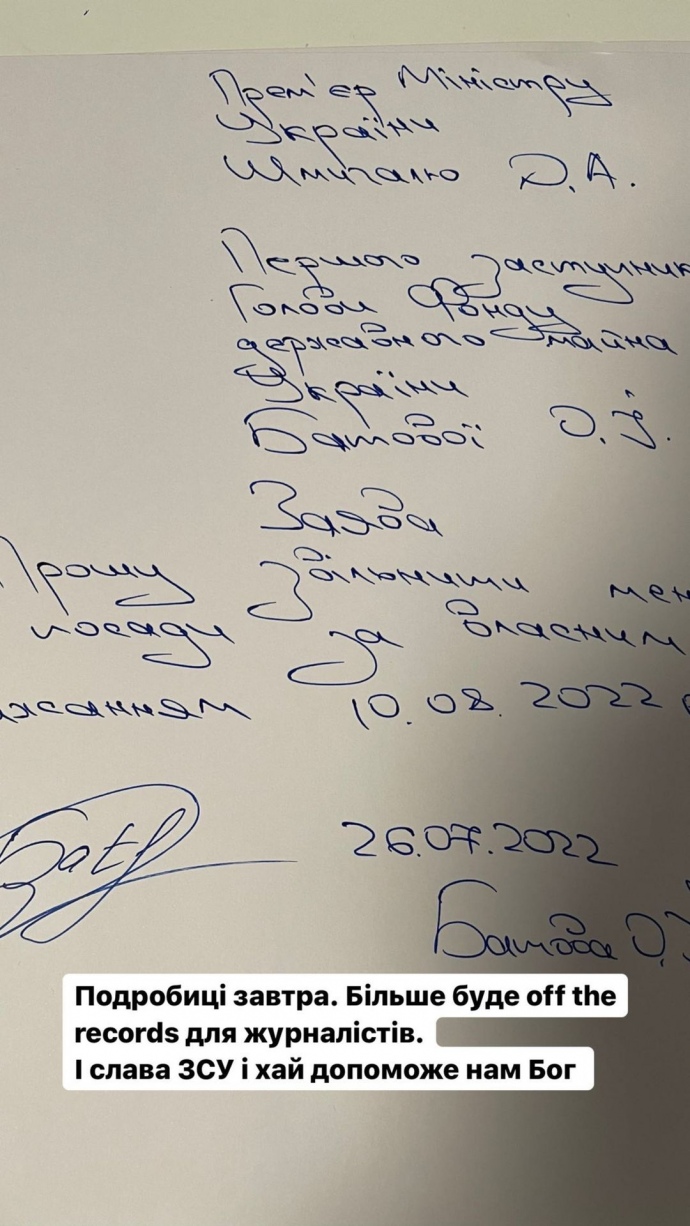 Прем'єр Міністру
України
Шмигалю Д.А.
Першого заступник
Голови Фонду
державного майна
України
Батової О.Ї.
Заява
Прошу звільнити мен
посади за власним
жанням 10.08.2022 р
Бат
26.07.2022
Батова О.
Подробиці завтра. Більше буде off the
records для журналістів.
І слава ЗСУ і хай допоможе нам Бог